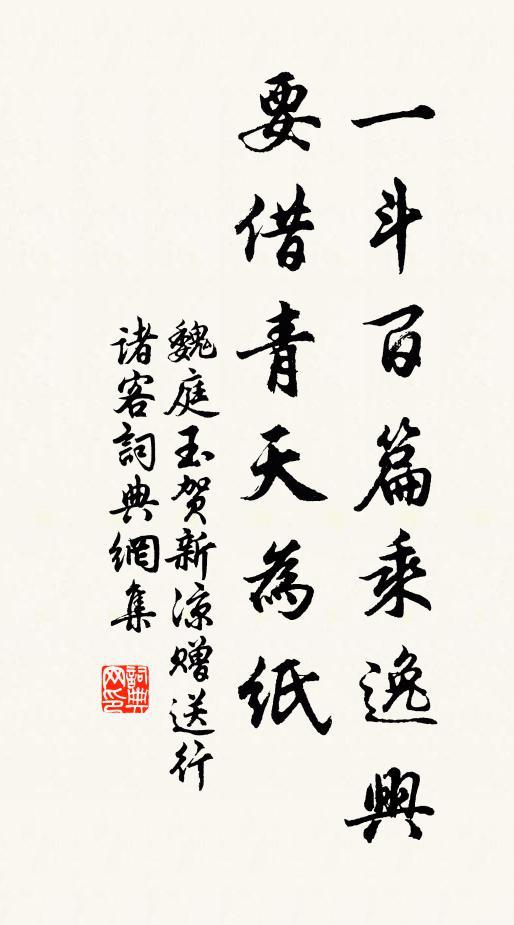 一斗百篇乘逸興
要借青天為紙
魏庭玉贺新凉赠送行
诸客詞典網集
詞典
网印